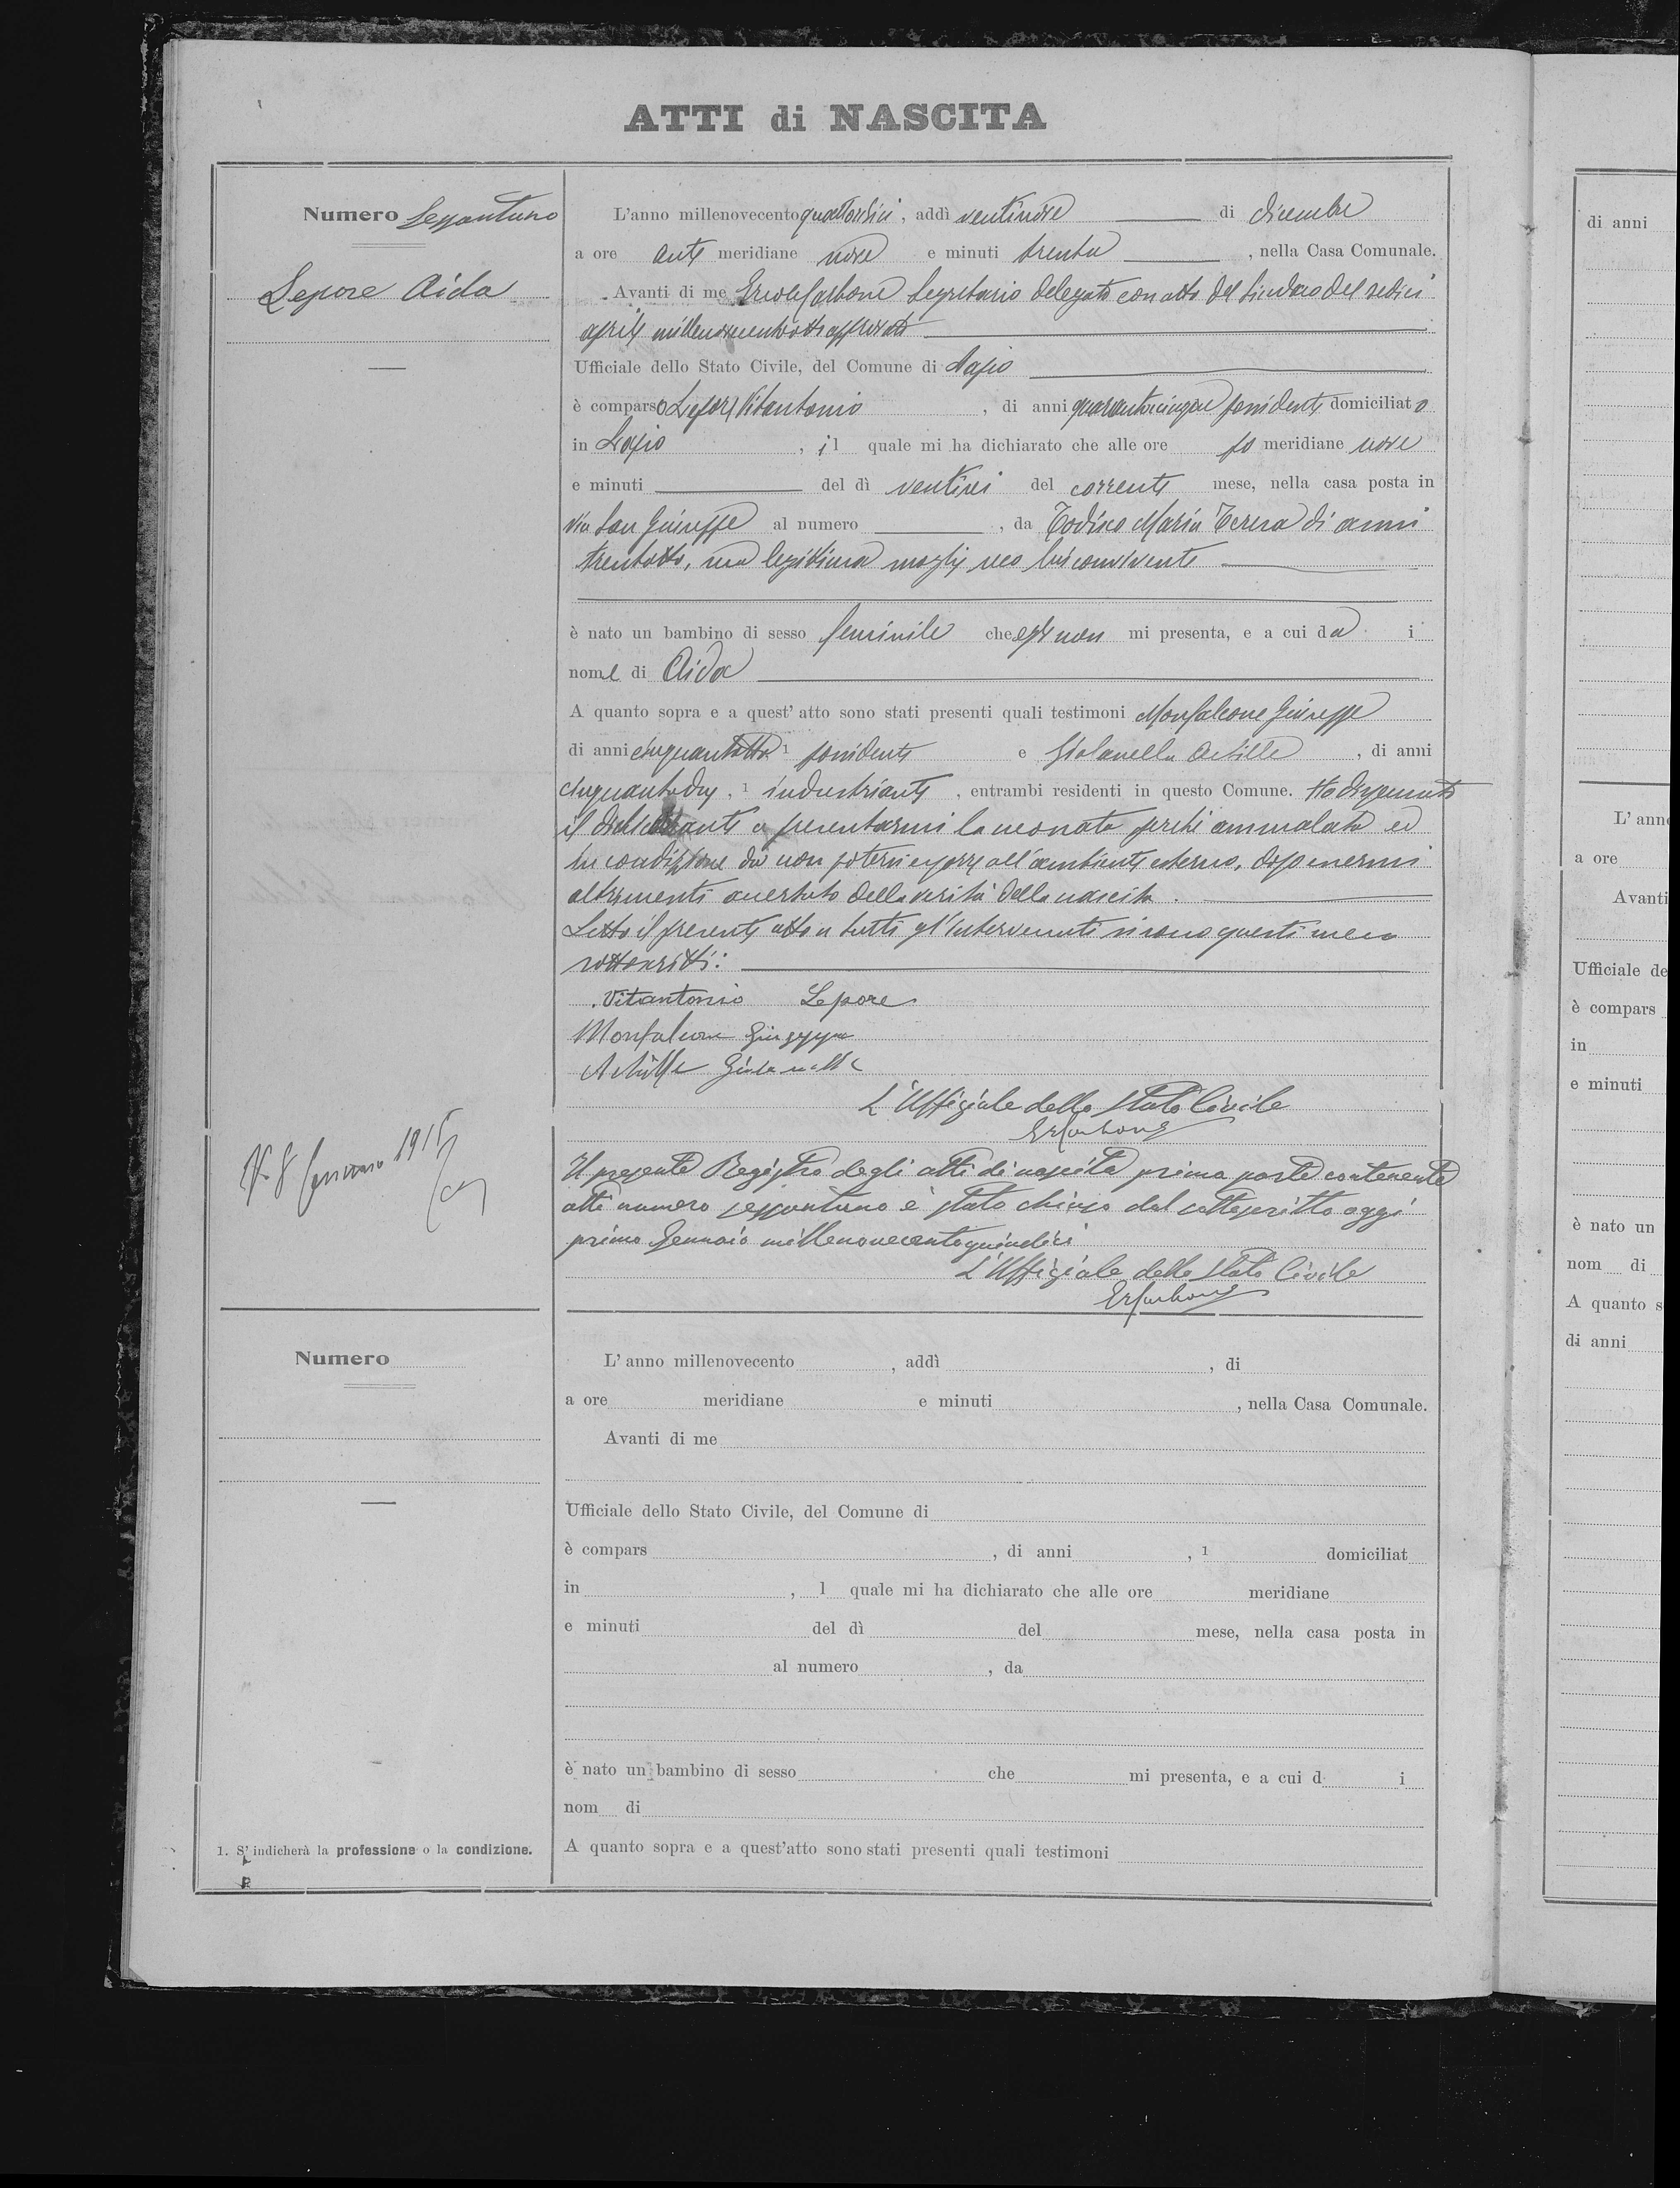 ATTI di NASCITA
Numero Sessantuno
Lepore Aida
L'anno millenovecento quattordici, addì ventinove di dicembre
a ore anti meridiane nove e minuti trenta, nella Casa Comunale.
Avanti di me Ercole Carbone Segretario delegato con atto del Sindaco del sedici
aprile millenovecentootto approvato
Ufficiale dello Stato Civile, del Comune di
è comparso Lepore Vitantonio, di anni quarantacinque possidente domiciliato
in, il quale mi ha dichiarato che alle ore po meridiane nove
e minuti del dì ventisei del corrente mese, nella casa posta in
via San Giuseppe al numero, da Todisco Maria Teresa di anni
trentotto, sua legittima moglie seco lui convivente
è nato un bambino di sesso feminile che egli non mi presenta, e a cui da i
nome di Aida
A quanto sopra e a quest' atto sono stati presenti quali testimoni Monfalcone Giuseppe
di anni cinquantotto 1 possidente e Giolanella Achille, di anni
cinquantadue, 1 industriante, entrambi residenti in questo Comune. Ho dispensato
il dichiarante a presentarmi la neonata perchè ammalata ed
in condizione da non potersi esporre all'ambiente esterno, dopo essermi
altrimenti accertato della verità della nascita.
Letto il presente atto a tutti gl'intervenuti si sono questi meco
sottoscritti:
Vitantonio Lepore
Monfalcone Giuseppe
Achille Giolanella
L'Uffiziale dello Stato Civile
ErCarbone
8 Gennaio 1915
Il presente Registro degli atti di nascita prima parte contenente
atti numero sessantuno è stato chiuso dal sottoscritto oggi
primo Gennaio millenovecentoquindici
L'Uffiziale dello Stato Civile
ErCarbone
Numero
L' anno millenovecento, addì, di
a ore meridiane e minuti, nella Casa Comunale.
Avanti di me
Ufficiale dello Stato Civile, del Comune di
è compars, di anni, 1 domiciliat
in, l quale mi ha dichiarato che alle ore meridiane
e minuti del dì del mese, nella casa posta in
al numero, da
è nato un bambino di sesso che mi presenta, e a cui d i
nom di
A quanto sopra e a quest'atto sono stati presenti quali testimoni
1. S' indicherà la professione o la condizione.
di anni
L' anno
a ore
Avanti
Ufficiale de
è compars
in
e minuti
è nato un
nom di
A quanto s
di anni